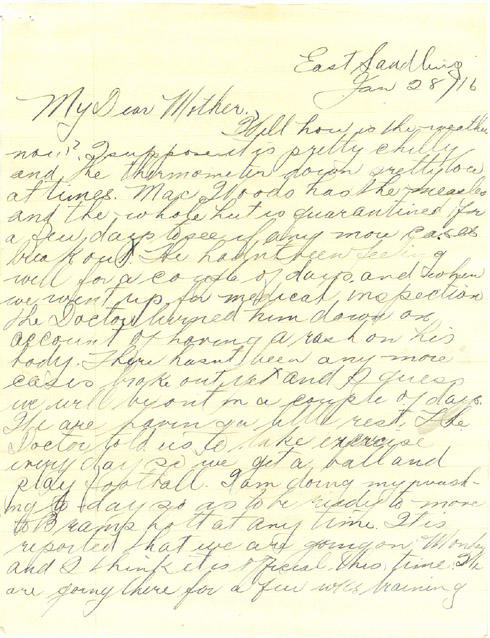 East Sandling
Jan 28/16
My Dear Mother.
Well how is the weather
now? I suppose it is pretty chilly
and the thermometer down pretty low
at times. Mac Woods has the measles
and the whole hut is quarantined for
a few days to see if any more cases
break out. He hasn't been feeling
well for a couple of days and when
we went up for medical inspection
the Doctor turned him down on
account of having a rash on his
body. There hasn't been any more
cases broke out yet and I guess
we will be out in a couple of days.
We are having a little rest. The
Doctor told us to take exercise
every day so we get a ball and
play football. I am doing my wash-
ing to-day so as to be ready to move
to Bramshott at any time. It is
reported that we are going on Monday
and I think it is official this time. We
are going there for a few wks training